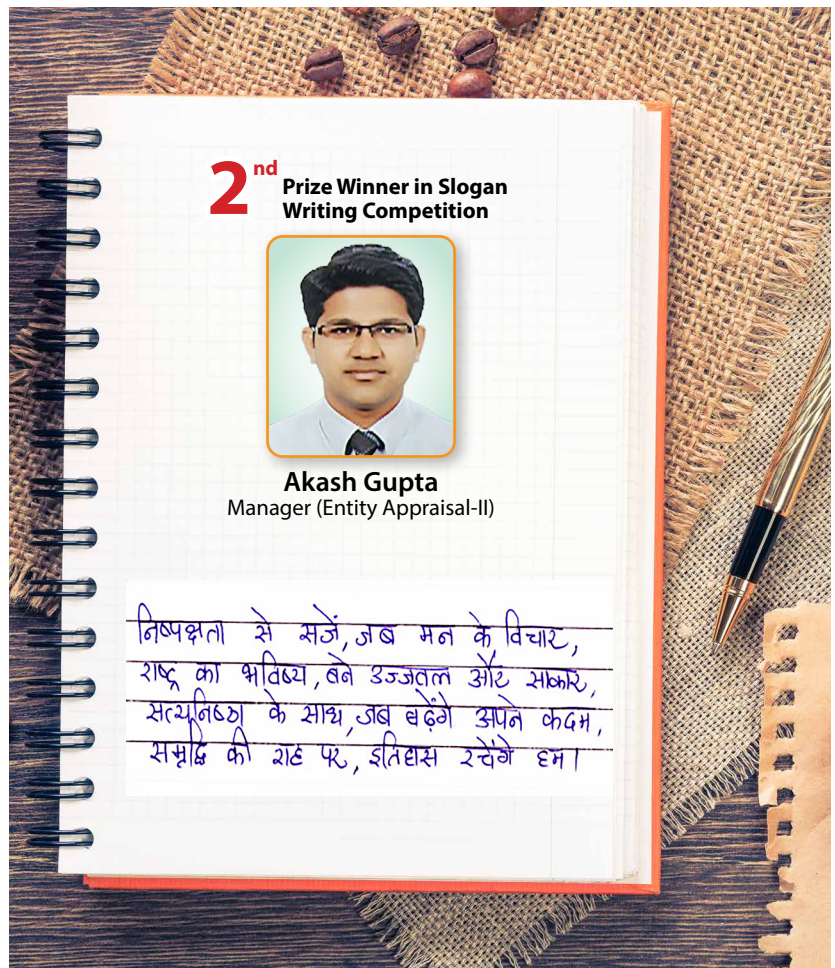 2nd
Prize Winner in Slogan
Writing Competition
Akash Gupta
Manager (Entity Appraisal-II)
निष्पक्षता से सजें, जब मन के विचार,
राष्ट्र का भविष्य, बने उज्जवल और साकार,
सत्यनिष्ठा के साथ, जब बढ़ेंगे अपने कदम,
समृद्धि की राह पर, इतिहास रचेंगे हम।